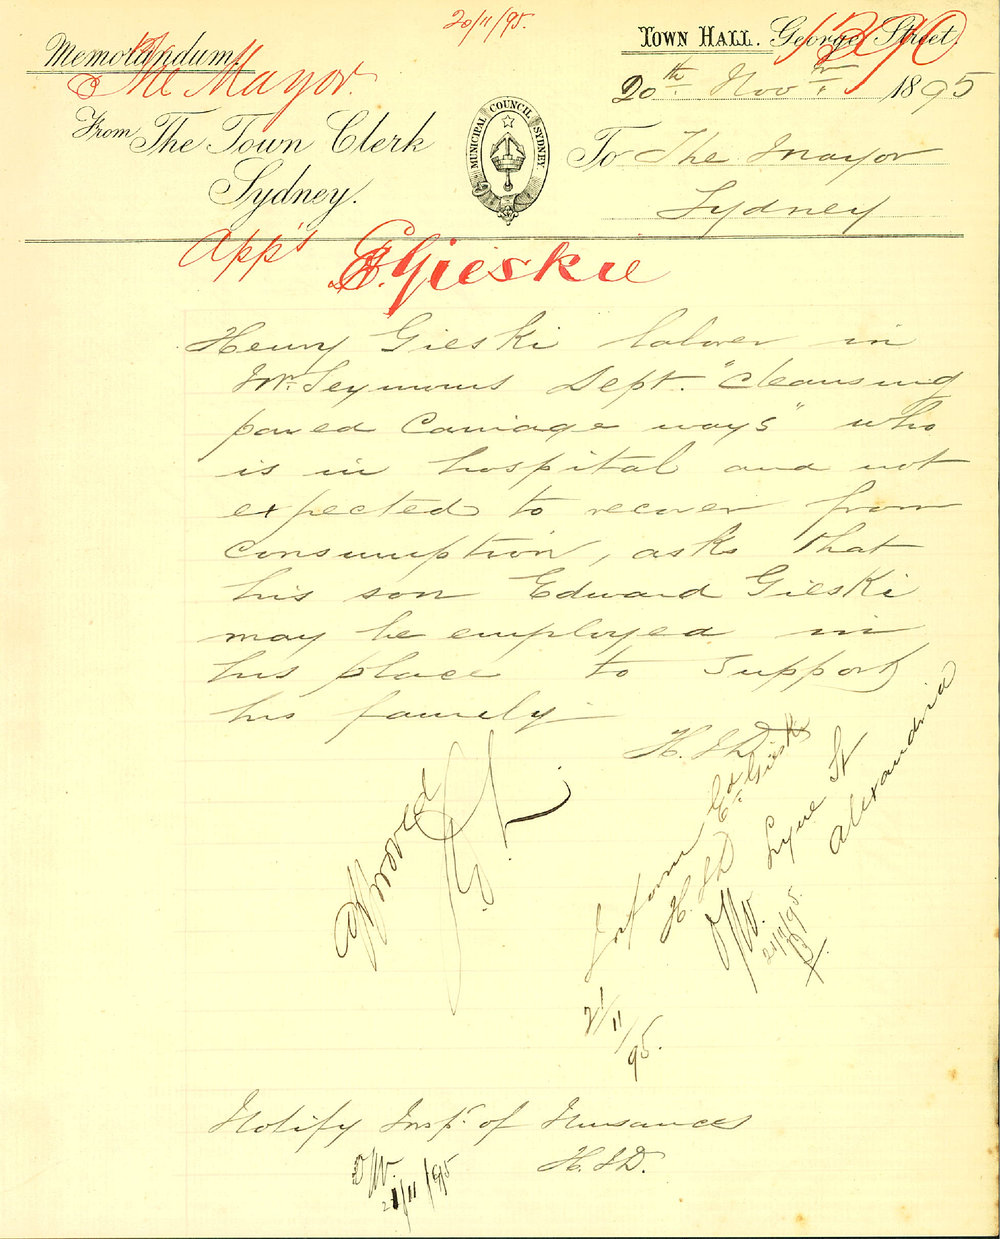 20/11/95.
Memorandum.
Town Hall. George Street.
The Mayor.
20th. Novr. 1895
From The Town Clerk
Sydney.
MUNICIPAL COUNCIL SYDNEY.
To The Mayor
Sydney
App's
E. Gieskie
Henry Gieski labover in
Mr. Seymours Dept. "Cleansing
paved Carriage ways" who
is in hospital and not
expected to recover from
consumption, asks that
his son Edward Gieski
may be employed in
his place to support
his family
H.S.D.
Approved
Inform Ed. Gieski
H.S.D
Lyne St
Alexandria
21/11/95.
21/11/95.
Notify Insp. of Nuisances
H.S.D.
21/11/95